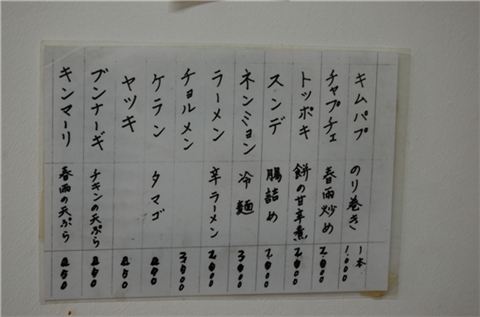 キムパプ のり巻き 一本 1,000
チャプチェ 春雨炒め 2000
トッポキ 餅の甘辛煮 2000
スンデ 腸詰め 2000
ネンミョン 冷麺 3000
ラーメン 辛ラーメン 2000
チョルメン
ケラン タマゴ
ヤツキ
ブンナーギ チキンの天ぷら
キンマーリ 春雨の天ぷら